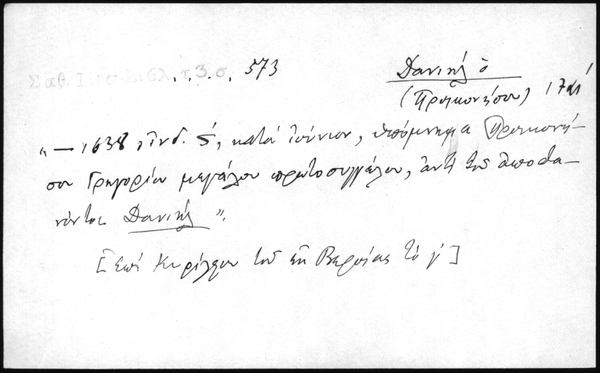 Σαθ. τ. 3. σ. 573
Δανιὴλ ὁ
(Προικονήσου)
„— 1638, ἰνδ. ς´, κατὰ ἰούνιον, ὑπόμνημα Προικονή-
σου Γρηγορίου μεγάλου πρωτοσυγγέλου, ἀντὶ τοῦ ἀποθα-
νόντος Δανιήλ".
[Ἐπὶ Κυρίλλου τοῦ ἐκ Βερροίας τὸ γ´]